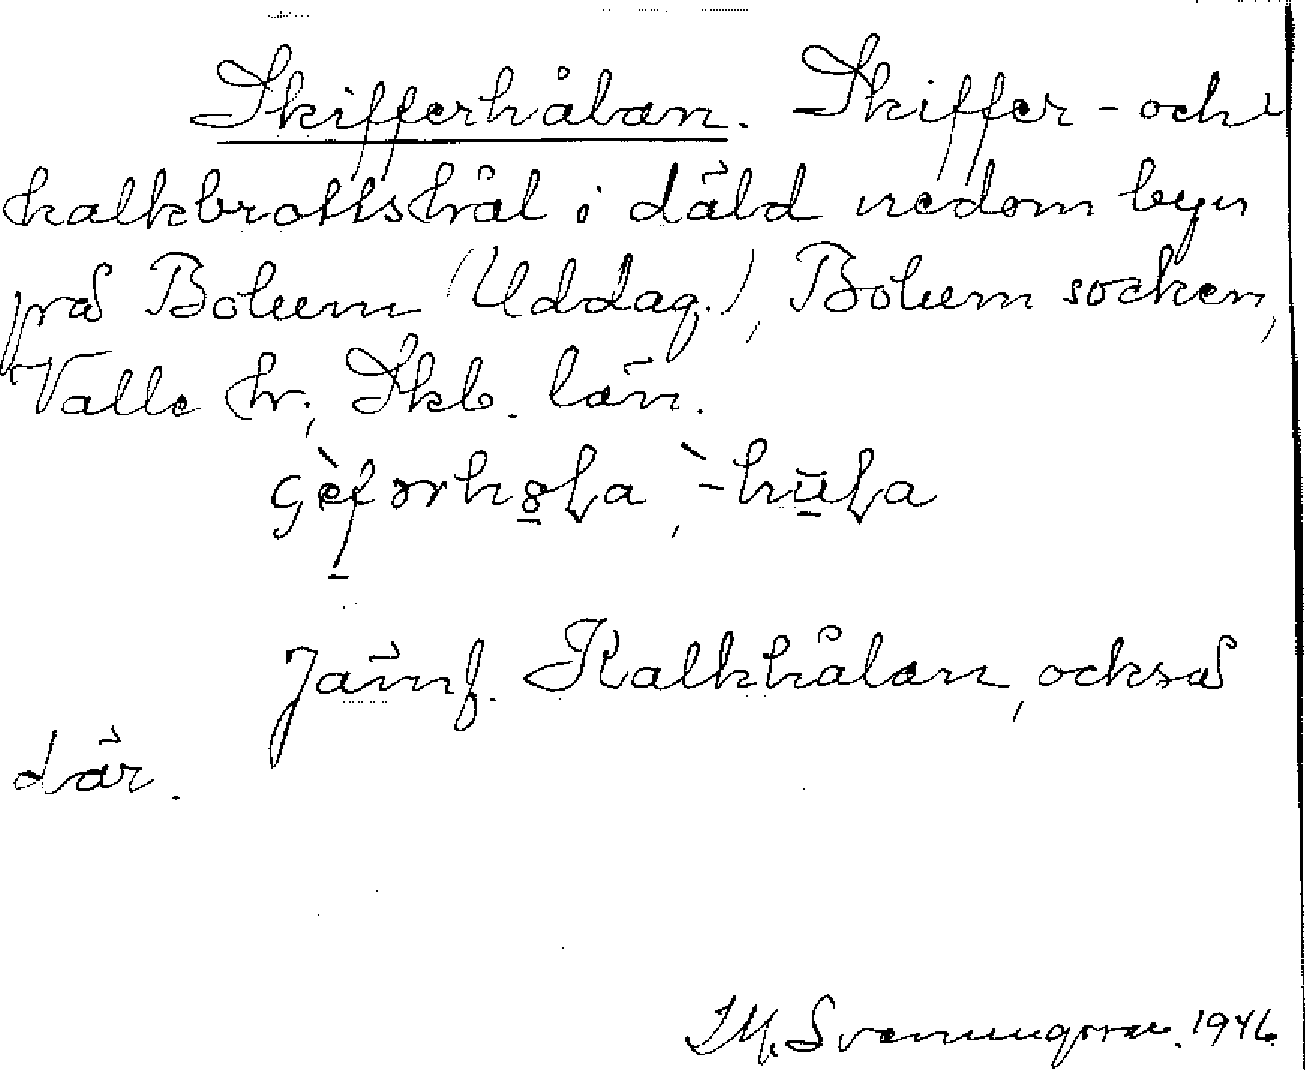 Skifferhålan. Skiffer- och
kalkbrottshål i däld nedom byn
på Bolum (Uddag.), Bolum socken,
Valle hr, Skb. län.
Jämf. Kalkhålan, också
där.
Svenningsson. 1946.